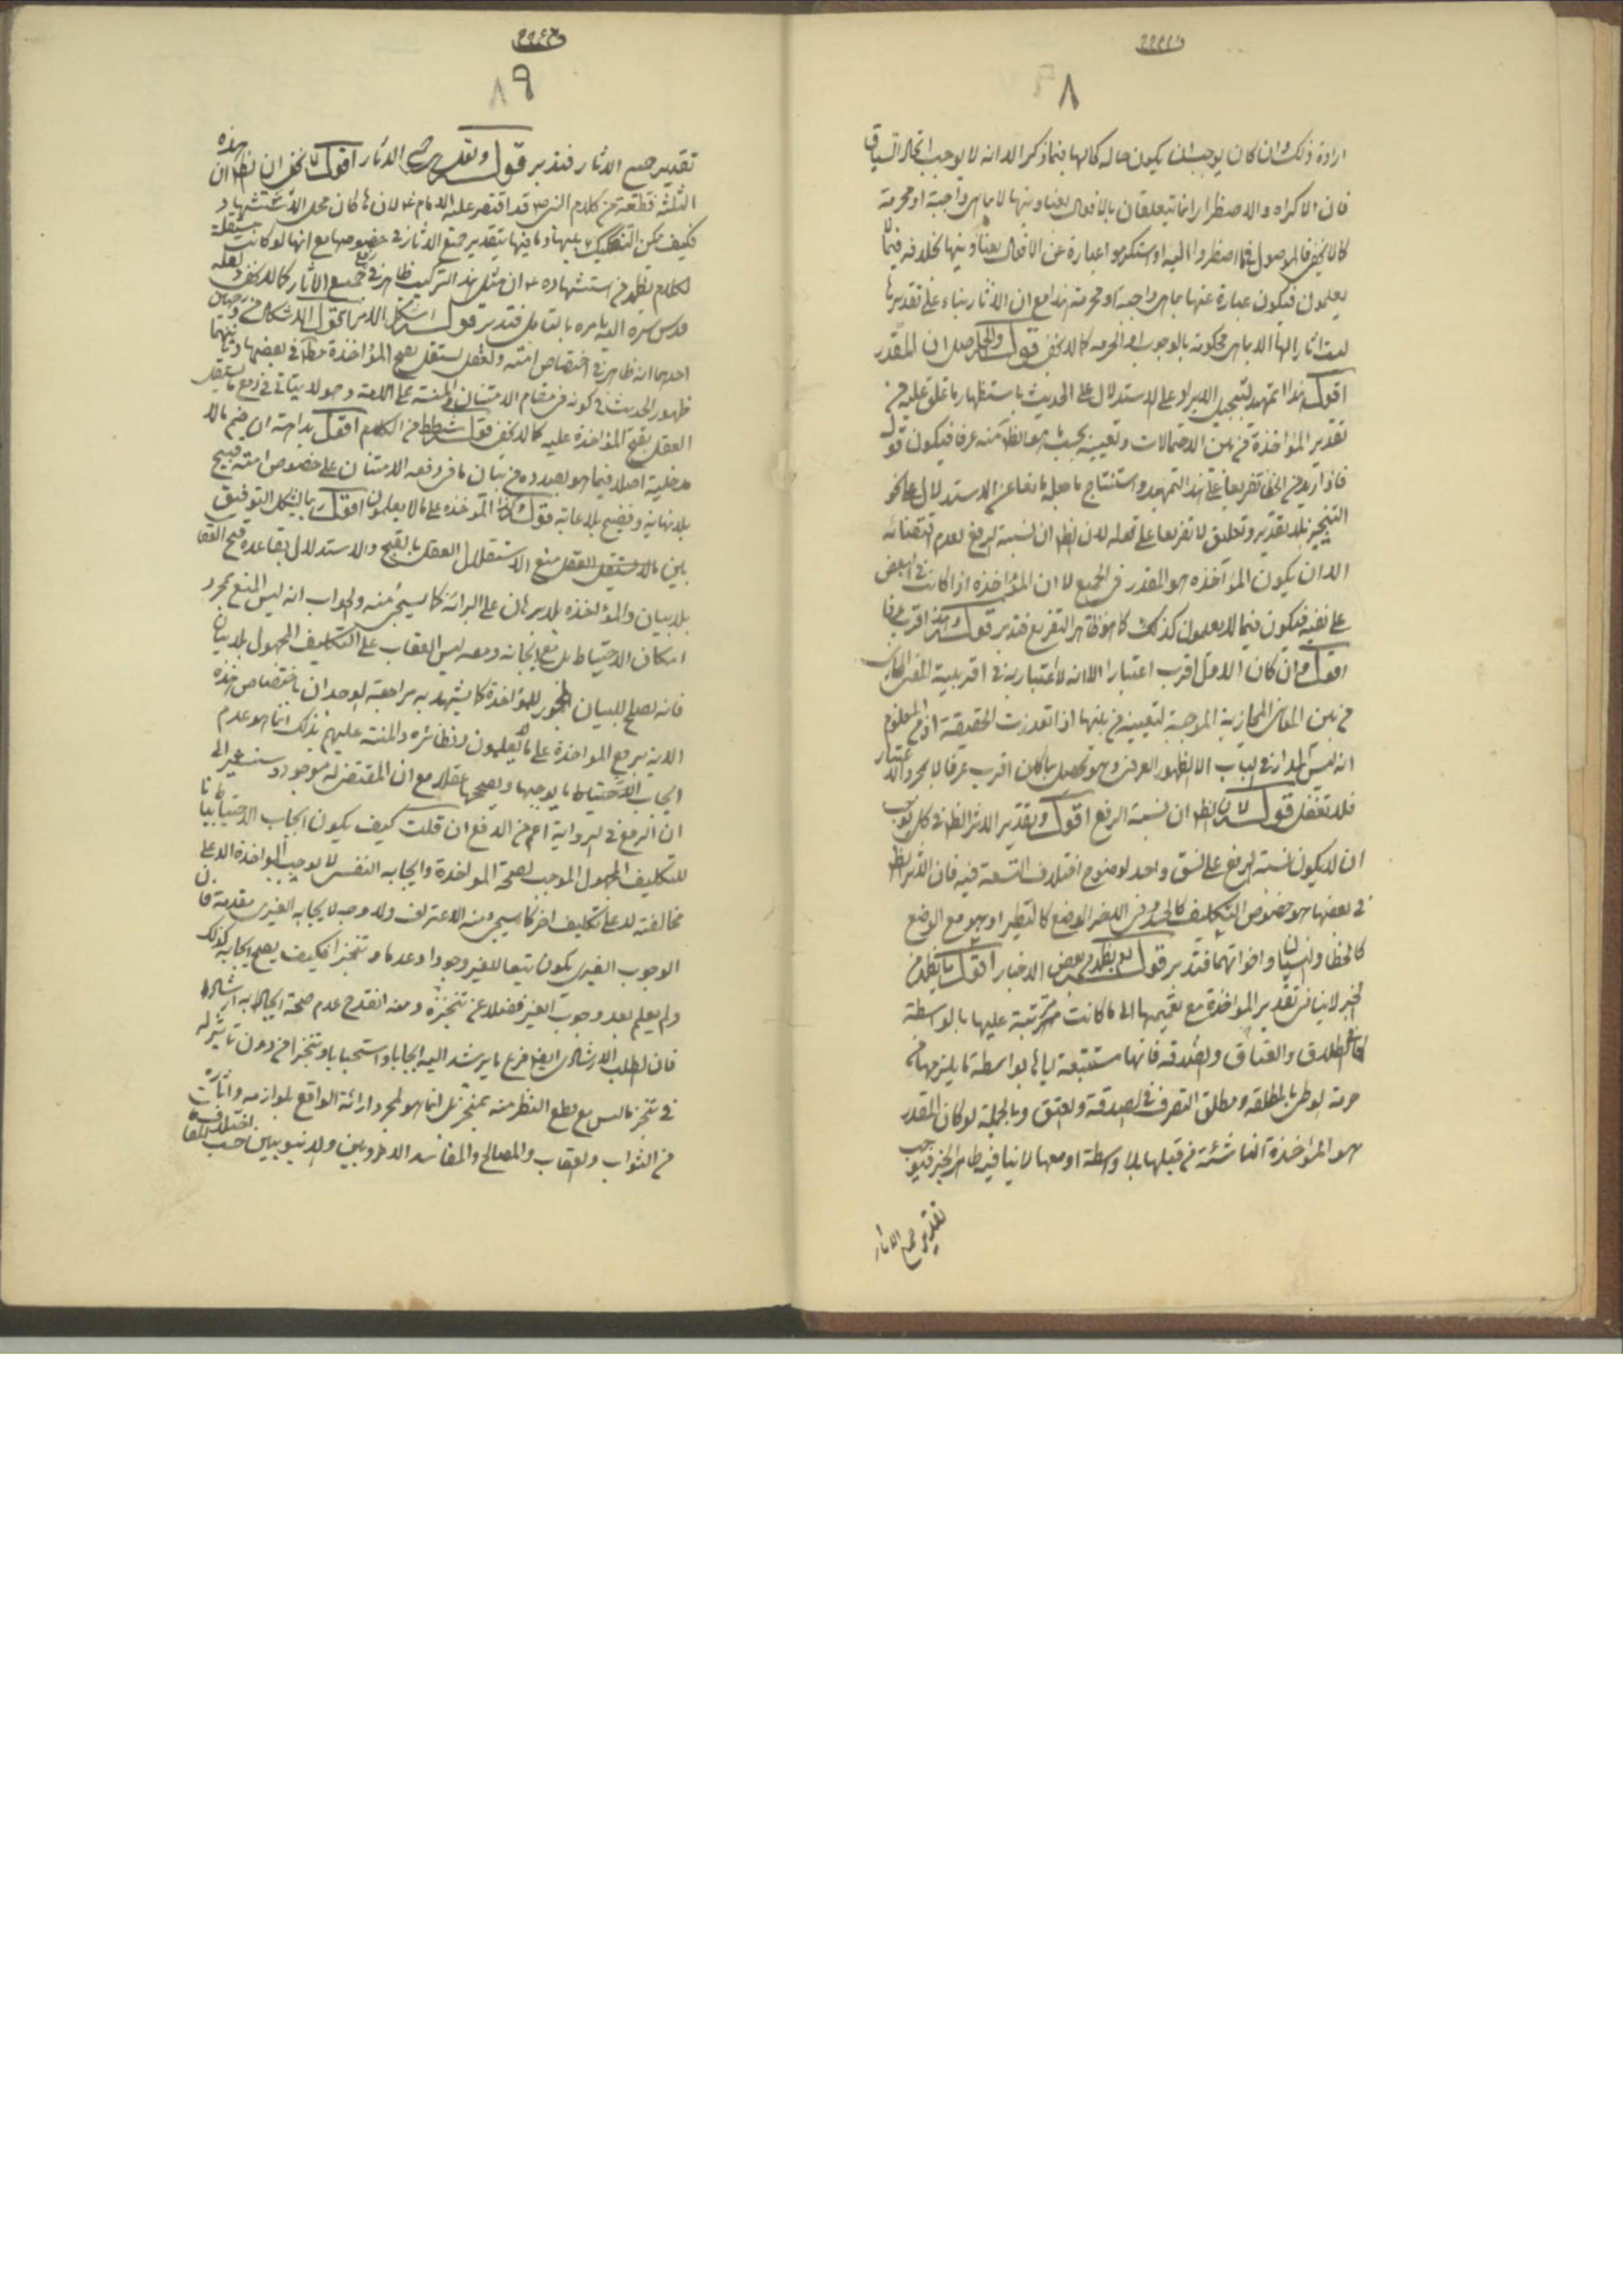 ٨
ارادة ذلك وان كان يوجب ان يكون حاله كالها فيما ذكر الا انه لا يوجب اتحاد السياق
فان الاكراه والاضطرار انما يتعلقان بالافعال بعناوينها لا بما هى واجبة او محرمة
كما لا يخفى فالموصول فيما اضطروا اليه او استكرهوا عبارة عن الافعال بعناوينها بخلافه فيما لا
يعلمون فيكون عبارة عنها بما هى واجبة او محرمة هذا مع ان الآثار بناء على تقديرها
ليست آثارا لها الا بما هى محكومة بالوجوب او الحرمه كما لا يخفى قوله والحاصل ان المقدر
اقول هذا تمهيد لتسجيل الايراد على الاستدلال على الحديث باستظهار ما علق عليه من
تقدير المؤاخذة من بين الاحتمالات وتعيينه بحيث هو الظ منه عرفا فيكون قوله
فاذا اريد من الخطاء تفريعا على هذا التمهيد واستنتاج ما جعله مانعا عن الاستدلال على نحو
التنجيز بلا تقدير وتعليق لا تفريعا على قوله لان الظ ان نسبة الرفع لعدم اقتضائه
الا ان يكون المؤاخذه هو المقدر فى الجميع لا ان المؤاخذه اذا كانت فى البعض
على نفسه فتكون فيما لا يعلمون كذلك كما هو ظاهر التفريع فتدبر قوله وهذا اقرب عرفا
اقول وان كان الاول اقرب اعتبارا الا انه لا اعتبار به فى اقربية المعنى المجازى
من بين المعانى المجازية الموجبة لتعيينه من بينها اذا تعذرت الحقيقة اذ من المعلوم
انه ليس المدار فى الباب الا الظهور العرفى وهو يحصل بما كان اقرب عرفا لا بمجرد الاعتبار
فلا تغفل قوله لان الظ ان نسبة الرفع اقول وتقدير الاثر الظ فى كل يوجب
ان لا يكون نسبة الرفع على نسق واحد لوضوح اختلاف التسعة فيه فان الاثر الظ
فى بعضها هو خصوص التكليف كالحسد وفى البعض الوضع كالتطير او هو مع الوضع
كالخطا والنسيان واخواتهما فتدبر قوله نعم يظهر من بعض الاخبار اقول ما يظهر من
الخبر لا ينافى تقدير المؤاخذة مع تعميمها الى ما كانت مترتبة عليها بالواسطة
كما فى الطلاق والعتاق والصدقه فانها مستتبعة اياها بواسطة ما يلزمها من
حرمة الوطى بالمطلقه ومطلق التصرف فى الصدقة والعتق وبالجملة لو كان المقدر
هو المؤاخذة الناشئة من قبلها بلا واسطة او معها لا ينافيه ظاهر الخبر فيوجب
تقدير جميع الآثار
٩
تقدير جميع الاثار فتدبر قوله وتقدير جميع الاثار اقول لا يخفى ان الظ ان هذه
الثلثة قطعة من كلام النبى ص قد اقتصر عليه الامام ع لان ها كان محل الاستشهاد
فكيف يمكن التفكيك بينها وما فيها بتقدير جميع الاثار فى خصوصها مع انها لو كانت مستقلة
الكلام يظهر من استشهاده ع ان مثل هذا التركيب ظاهر فى رفع جميع الآثار كما لا يخفى ولعله
قدس سره اليه امره بالتامل فتدبر قوله اشكل الامر اقول الاشكال من وجهين
احدهما انه ظاهر فى اختصاص امته والعقل يستقل بقبح المؤاخذة مطلقا فى بعضها وثانيهما
ظهور الحديث فى كونه فى مقام الامتنان والمنة على الامة وهو لا يتاتى فى رفع ما يستقل
العقل بقبح المؤاخذة عليه كما لا يخفى قوله شطط من الكلام اقول بداهة ان ضم ما لا
مدخلية اصلا فيما هو بصدده من بيان ما فى رفعه الامتنان على خصوص امته قبيح
بلا نهاية وفضيح بلا غاية قوله وكذا المؤاخذه على ما لا يعلمون اقول ربما يشكل التوفيق
بين ما لا يستقل العقل منع الاستقلال العقل بالقبح والاستدلال بقاعدة قبح العقاب
بلا بيان والمؤاخذه بلا برهان على البرائة كما سيجئ منه والجواب انه ليس المنع بمجرد
امكان الاحتياط بل مع ايجابه ومعه ليس العقاب على التكليف المجهول بلا بيان
فانه يصلح للبيان المجوز للمؤاخذة كما يشهد به مراجعة الوجدان باختصاص هذه
الامة برفع المؤاخذة على ما لا يعلمون ونظائره والمنة عليهم بذلك انما هو عدم
ايجاب الاحتياط بما يوجبها ويصححها عقلا مع ان المقتضى له موجود وسنشير الى
ان الرفع فى الرواية اعم من الدفع ان قلت كيف يكون ايجاب الاحتياط بيانا
للتكليف المجهول الموجب لصحة المؤاخذة وايجابه النفسى لا يوجب المؤاخذة الا على
مخالفته لا على تكليف اخر كما سيجئ منه الاعتراف ولا وجه لايجابه الغيرى مقدمة فان
الوجوب الغيرى يكون تبعا للغير وجودا وعدما وتنجزا فكيف يصح ايجابه كذلك
ولم يعلم بعد وجوب الغير فضلا عن تنجزه ومنه انقدح عدم صحة ايجابه به ارشادا
فان الطلب الارشادى ايضا فرع ما يرشد اليه ايجابا واستحبابا وتنجزا من دون تاثير له
فى تنجز ما ليس مع قطع النظر عنه بمنجز بل انما هو لمجرد ارائة الواقع بلوازمه وآثاره
من الثواب والعقاب والمصالح والمفاسد الاخرويين والدنيويين حسب اختلاف المقامات